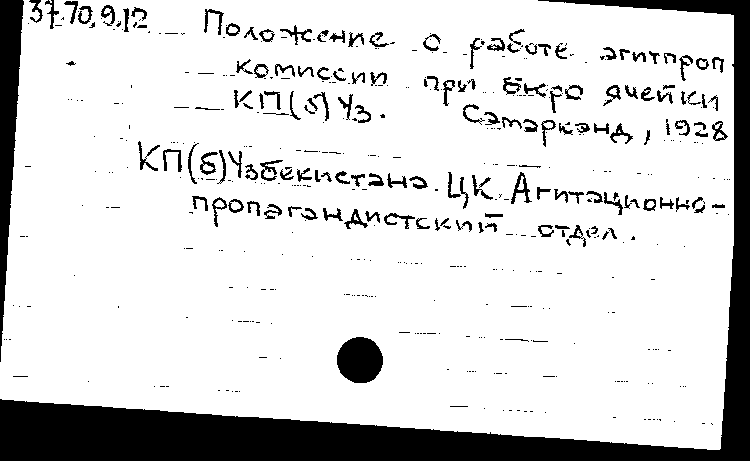 37.70.9.12 Положение о работе агитпроп.
комиссии при бюро ячейки
КП(б)Уз. Самарканд, 1928
КП(б)Узбекистана. ЦК. Агитационно-
пропагандистский отдел.